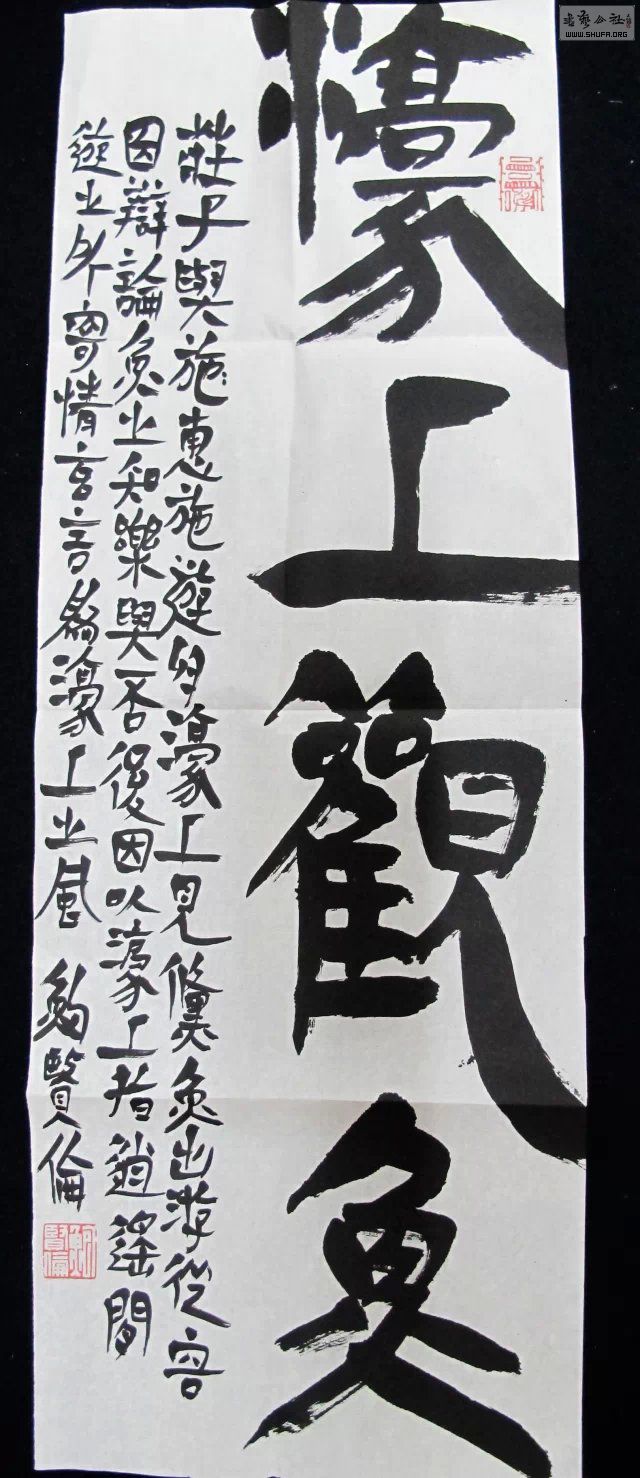 濠上觀魚
莊子與施惠施遊於濠上見儵魚出游從容
因辯論魚之知樂與否後因以濠上者逍遙閒
遊之外寄情玄言為濠上之風 鮑賢倫
書藝公社
WWW.SHUFA.ORG